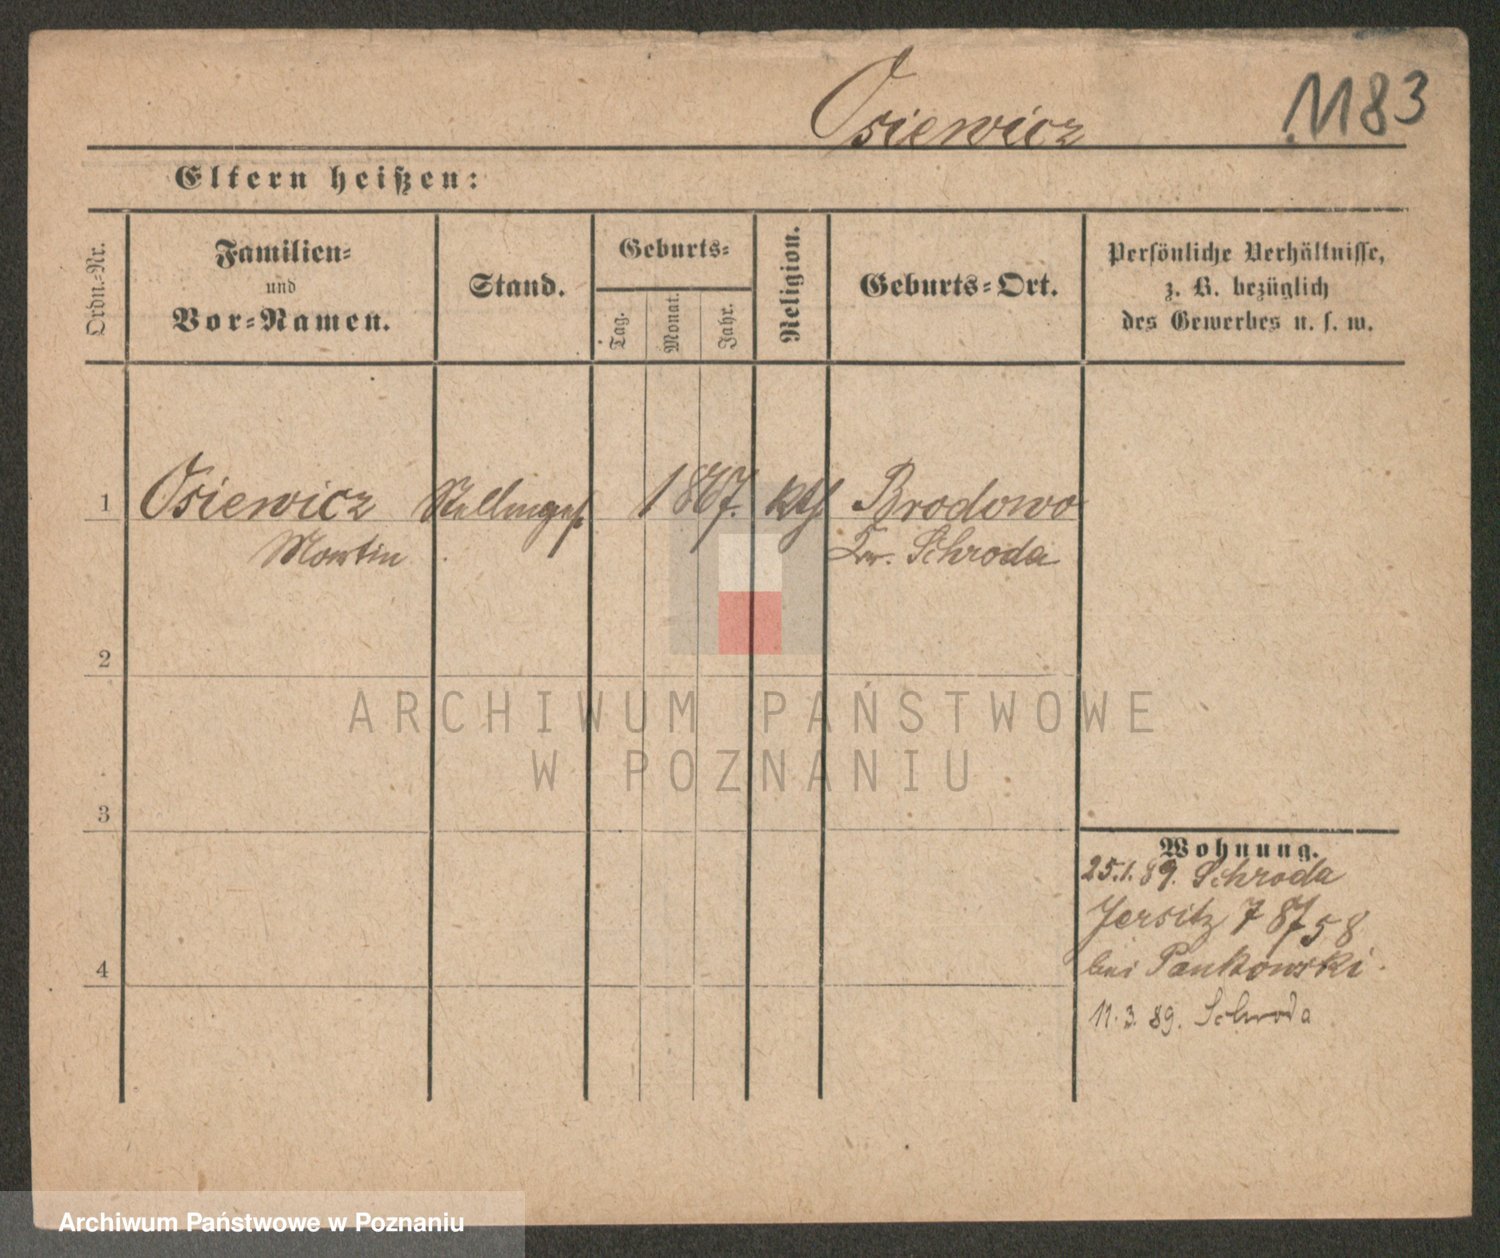 Osiewicz
1183
Eltern heißen:
Ordn.-Nr.
Familien-
und
Vor-Namen.
Stand.
Geburts-
Tag.
Monat.
Jahr.
Religion.
Geburts-Ort.
Persönliche Verhältnisse,
z. B. bezüglich
des Gewerbes u. s. w.
1
Osiewicz
Martin
Stellmges.
1867.
kth
Brodowo
Kr. Schroda
2
3
4
Wohnung.
25.1.89. Schroda
Jersitz 7 8758
bei Pankowski
11.3.89. Schroda
ARCHIWUM PAŃSTWOWE
W POZNANIU
Archiwum Państwowe w Poznaniu